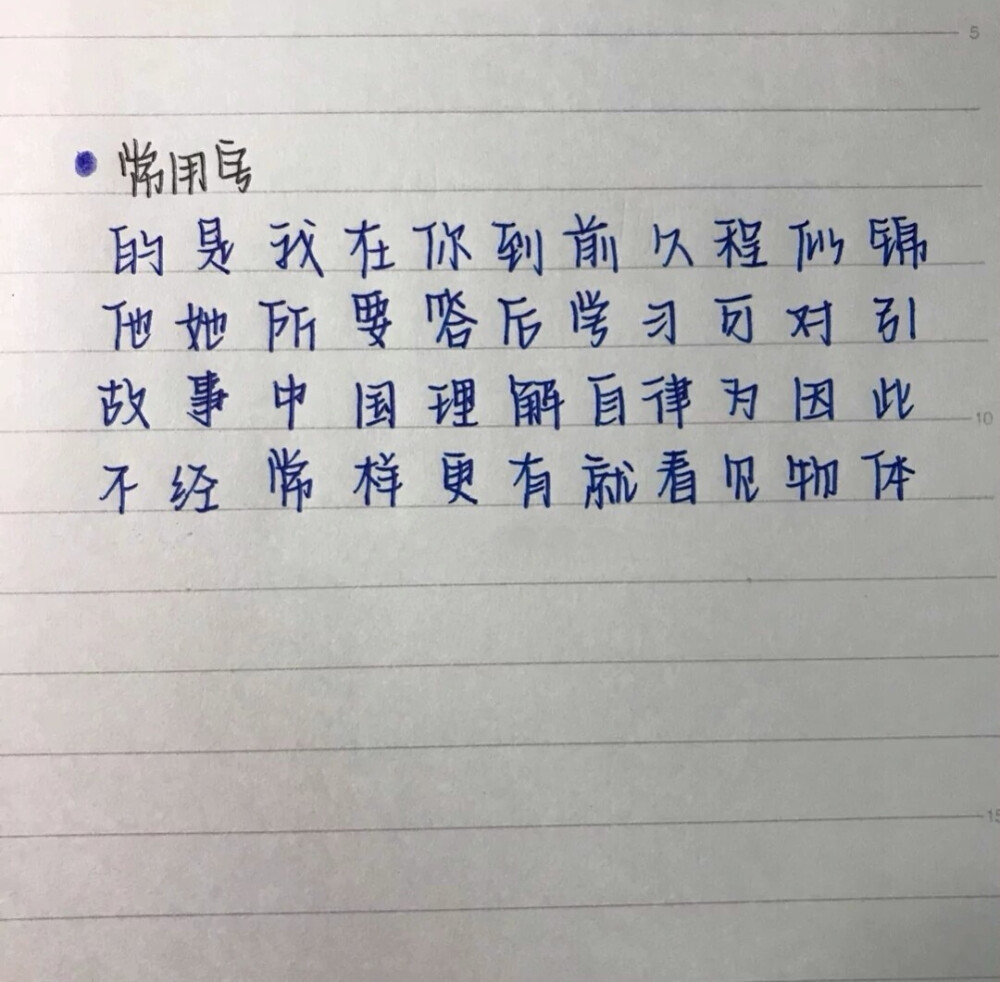 5
常用字
的是我在你到前久程似锦
他她所要答后学习可对引
故事中国理解自律为因此
10
不经常样更有就看见物体
15